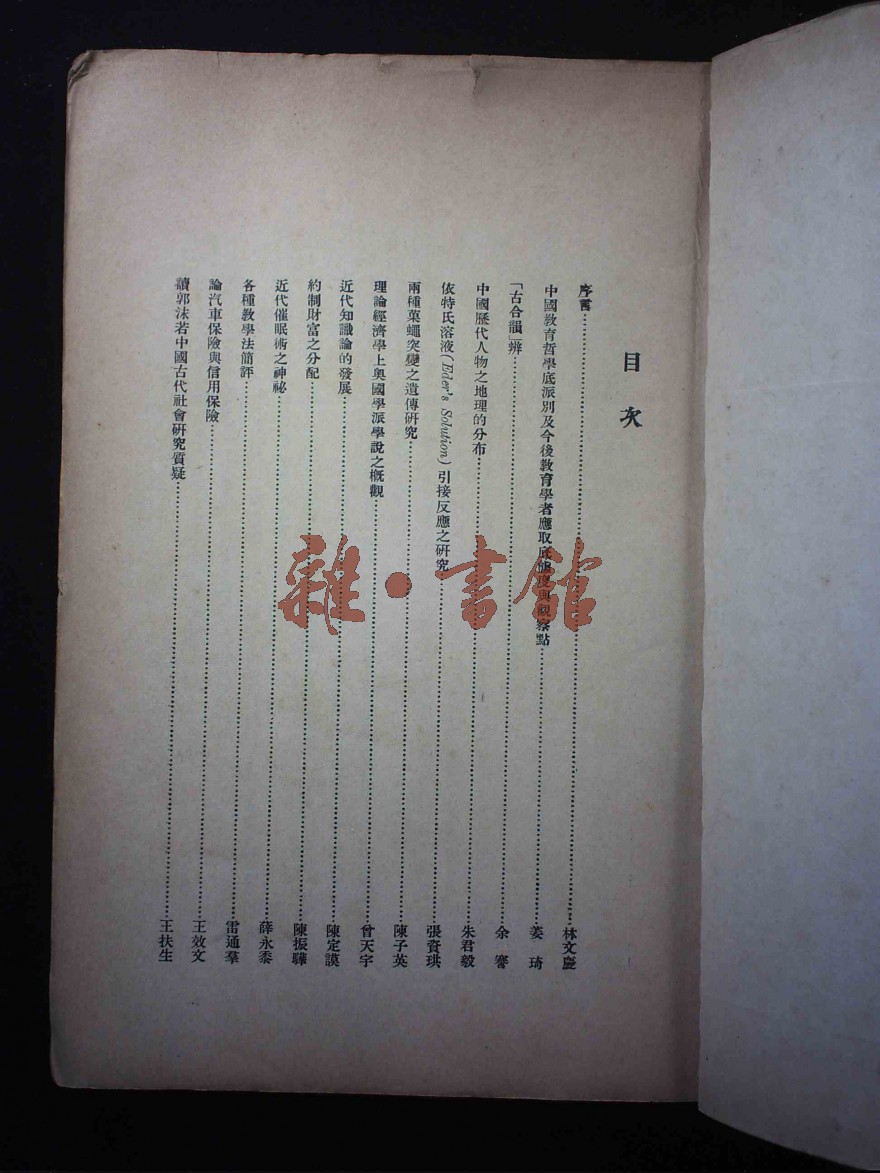 目次
序言……林文慶
中國教育哲學底派別及今後教育學者應取底態度與觀察點……姜琦
「古合韻」辨……余謇
中國歷代人物之地理的分布……朱君毅
依特氏溶液(Eder's Solution)引接反應之研究……張資珙
兩種菓蠅突變之遺傳研究……陳子英
理論經濟學上奧國學派學說之概觀……曾天宇
近代知識論的發展……陳定謨
約制財富之分配……陳振驊
近代催眠術之神祕……薛永黍
各種教學法簡評……雷通羣
論汽車保險與信用保險……王效文
讀郭沫若中國古代社會研究質疑……王扶生
雜·書館